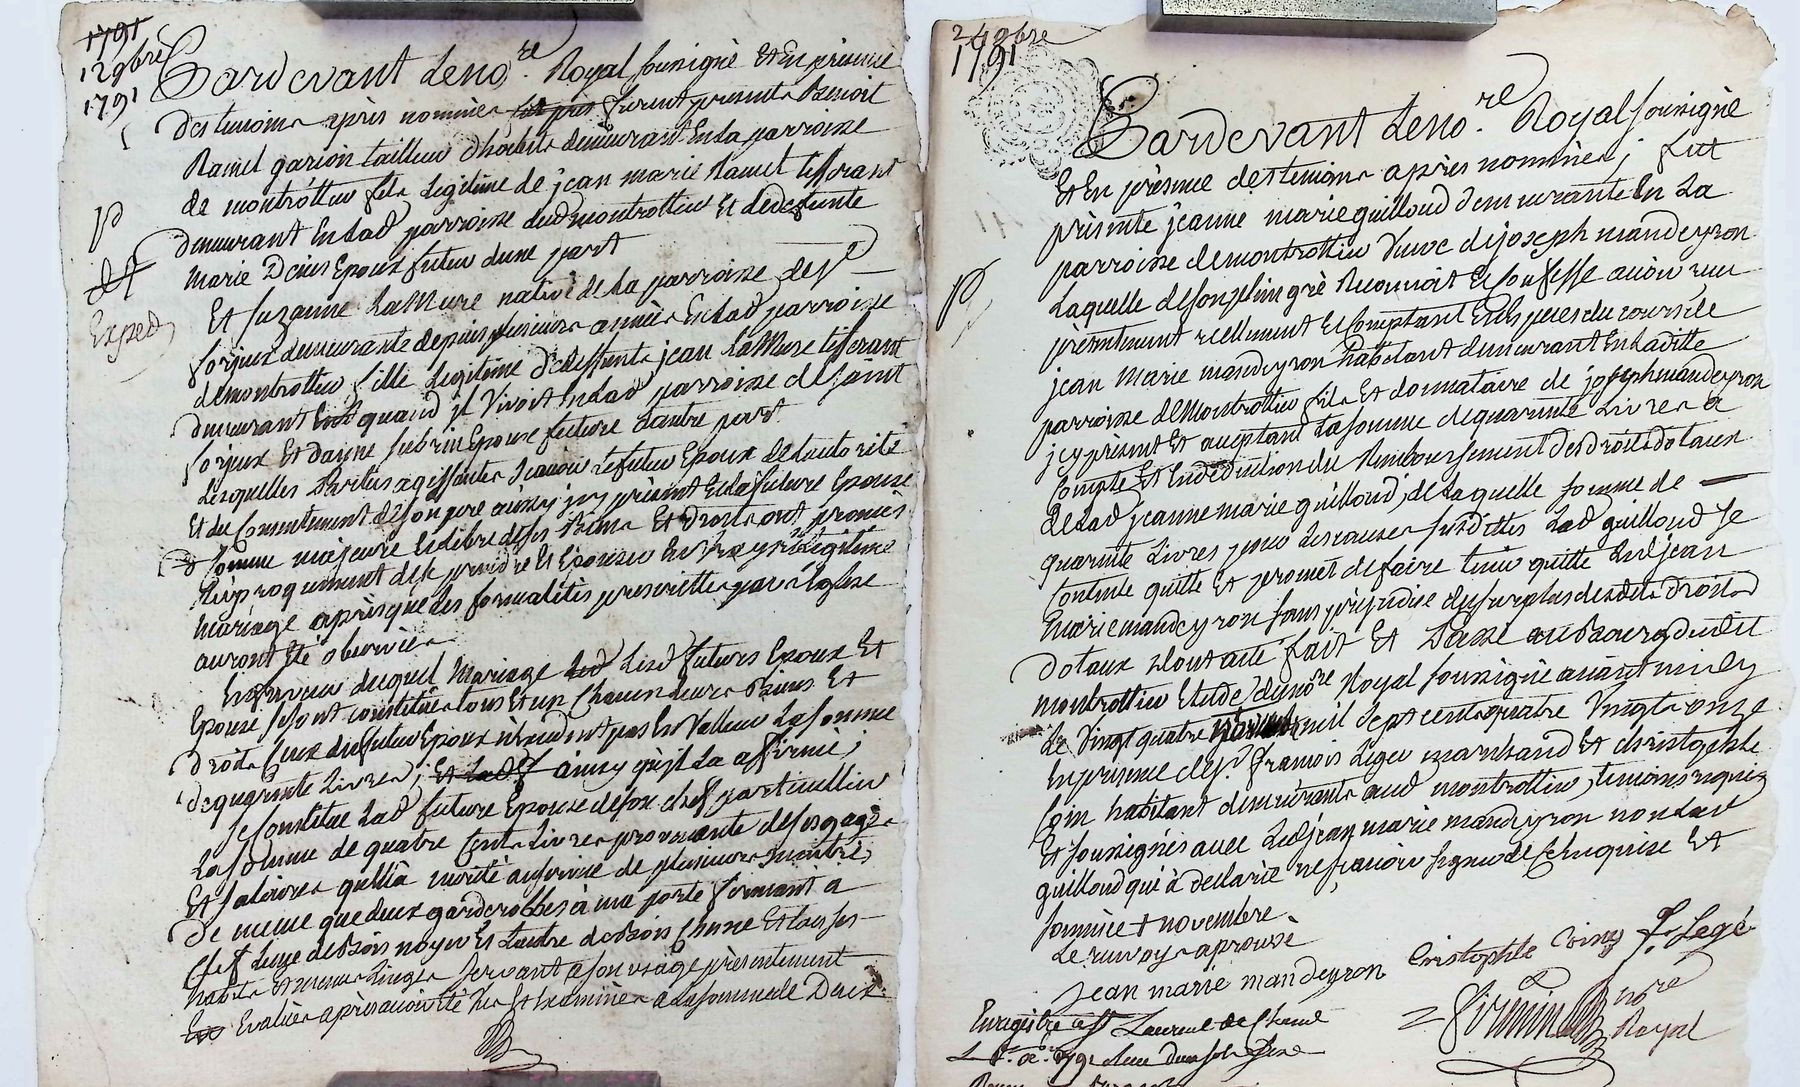 1791
12 9bre
1791
Pardevant le no.re Royal soussigné Et En présence
des temoins après nommés furent presents Benoit
Ramel garçon tailleur d'habits demeurant En la parroisse
de montrottier fils legitime de jean marie Ramel tisserant
demeurant En lad parroisse dud montrottier Et de deffunte
marie Epoux futur dune part
Et Suzanne LaMure native de la parroisse de St
forjeux demeurante depuis plusieurs années En lad parroisse
de montrottier fille legitime de deffunts jean LaMure tisserant
demeurant quand il vivoit En lad parroisse de saint
forjeux Et Epouse future d'autre part
Lesquelles parties agissantes sçavoir le futur Epoux de l'autorité
Et du Consentement de son pere aussy icy présent Et la future Epouse
Comme majeure Et libre de ses Biens Et droits ont promis
Réciproquement de se prendre Et Epouser En vray Et legitime
mariage après que les formalités prescrittes par l'Eglise
auront été observées
En faveur duquel mariage lesd futurs Epoux Et
Epouse se sont constitués tous Et un Chacun leurs Biens Et
droits Ceux du futur Epoux n'Excedant pas En Valleur La somme
de quarante Livres ainsy qu'il La affirmé
Se Constitue Lad future Epouse de son chef particullier
La somme de quatre Cents Livres provenante de ses gages
Et salaires quelle à mérité au service de plusieurs maitres
de meme que deux garderobbes à une porte fermant a
Clef L'une de Bois noyer Et L'autre de Bois Chene Et tous ses
habits Et menus Linges servant a son usage présentement
Evalués après avoir été vus Et Examinés a la somme de Deux
P
Exped
24 9bre
1791
Pardevant Le no.re Royal soussigné
Et En présence des temoins après nommés, fut
présente jeanne marie guilloud demeurante En La
parroisse de montrottier Veuve de joseph mandeyron
Laquelle de son plein gré Reconnoit Et Confesse avoir reçu
présentement reellement Et Comptant En Espèces du cours de
jean Marie mandeyron habitant demeurant En Laditte
parroisse de Montrottier fils Et donnataire de joseph mandeyron
icy présent Et acceptant La somme de quarante Livres a
Compte Et En déduction du Remboursement des droits dotaux
de Lad jeanne marie guilloud, de Laquelle somme de
quarante Livres pour Les causes susdittes Lad guilloud se
Contente quitte Et promet de faire tenir quitte Led jean
Marie mandeyron sans préjudice du surplus de sesdits droits
dotaux dont acte fait Et Passé au Bourg dudit
montrottier Etude dunore Royal soussigné avant midy
Le vingt quatre mil sept cents quatre vingt onze
En présence de sr françois Legé marchand Et christophle
Coin habitant demeurants aud montrottier, temoins requis
Et soussignés avec Led jean marie mandeyron non Lad
guilloud qui à declaré ne sçavoir signer de Ce Enquise Et
sommée + novembre
Le renvoy approuvé
jean marie mandeyron
Cristophle Coing f. Legé
nore
Royal
P